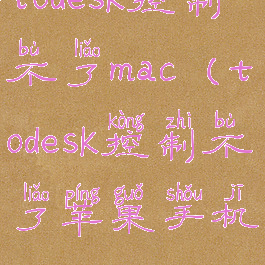 todesk控制
bù liǎo
不了mac（t
kòng zhì bù
odesk控制不
liǎo píng guǒ shǒu jī
了苹果手机